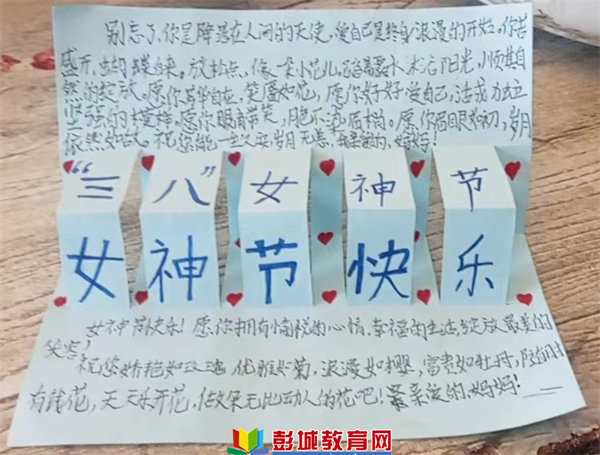 别忘了,你是降落在人间的天使,爱自己是终身浪漫的开始。你若
盛开,蝴蝶自来。放松点,像一朵小花儿,踏着露水,沐浴阳光,顺其自
然的绽放。愿你芳华自在,笑靥如花,愿你好好爱自己,活成
坚强的模样。愿你眼角带笑,愿你眉眼如初,岁月
依然如故。祝您能一生平安,岁月无恙,亲爱的,妈妈!
“三八”女神节
女神节快乐
女神节快乐!愿你拥有愉悦的心情,幸福的生活,绽放最美的
笑容!
祝您娇艳如玫瑰,优雅如菊,浪漫如樱,富贵如牡丹,
有钱花,天天乐开花,做无比动人的花吧!最亲爱的,妈妈!
彭城教育网